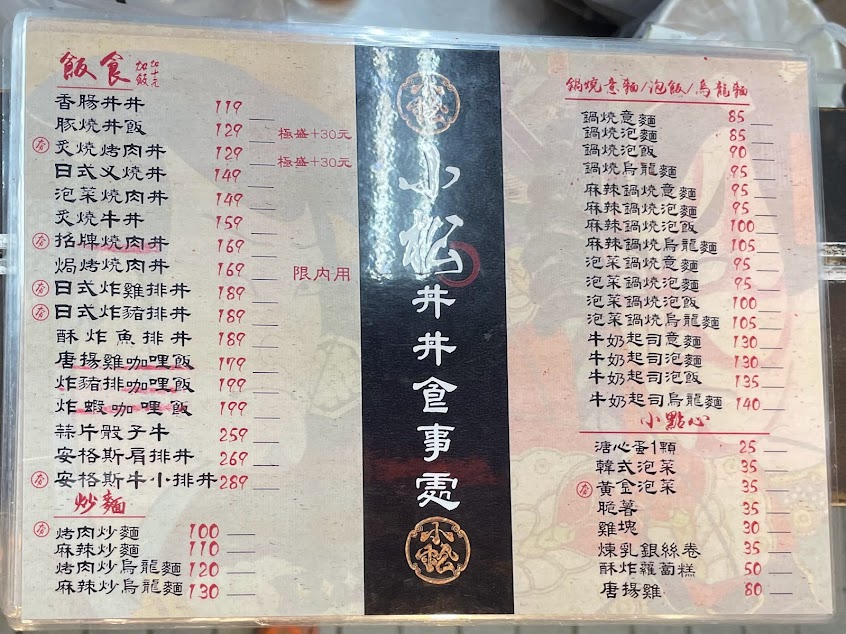 飯食 加飯加十元
香腸丼丼 119
豚燒丼飯 129 極盛+30元
炙燒烤肉丼 129 極盛+30元
日式叉燒丼 149
泡菜燒肉丼 149
炙燒牛丼 159
招牌燒肉丼 169
焗烤燒肉丼 169 限內用
日式炸雞排丼 189
日式炸豬排丼 189
酥炸魚排丼 189
唐揚雞咖哩飯 179
炸豬排咖哩飯 199
炸蝦咖哩飯 199
蒜片骰子牛 259
安格斯肩排丼 269
安格斯牛小排丼 289
炒麵
烤肉炒麵 100
麻辣炒麵 110
烤肉炒烏龍麵 120
麻辣炒烏龍麵 130
小松
小松丼丼食事処
小松
鍋燒意麵/泡飯/烏龍麵
鍋燒意麵 85
鍋燒泡麵 85
鍋燒泡飯 90
鍋燒烏龍麵 95
麻辣鍋燒意麵 95
麻辣鍋燒泡麵 95
麻辣鍋燒泡飯 100
麻辣鍋燒烏龍麵 105
泡菜鍋燒意麵 95
泡菜鍋燒泡麵 95
泡菜鍋燒泡飯 100
泡菜鍋燒烏龍麵 105
牛奶起司意麵 130
牛奶起司泡麵 130
牛奶起司泡飯 135
牛奶起司烏龍麵 140
小點心
溏心蛋1顆 25
韓式泡菜 35
黃金泡菜 35
脆薯 35
雞塊 30
煉乳銀絲卷 35
酥炸蘿蔔糕 50
唐揚雞 80